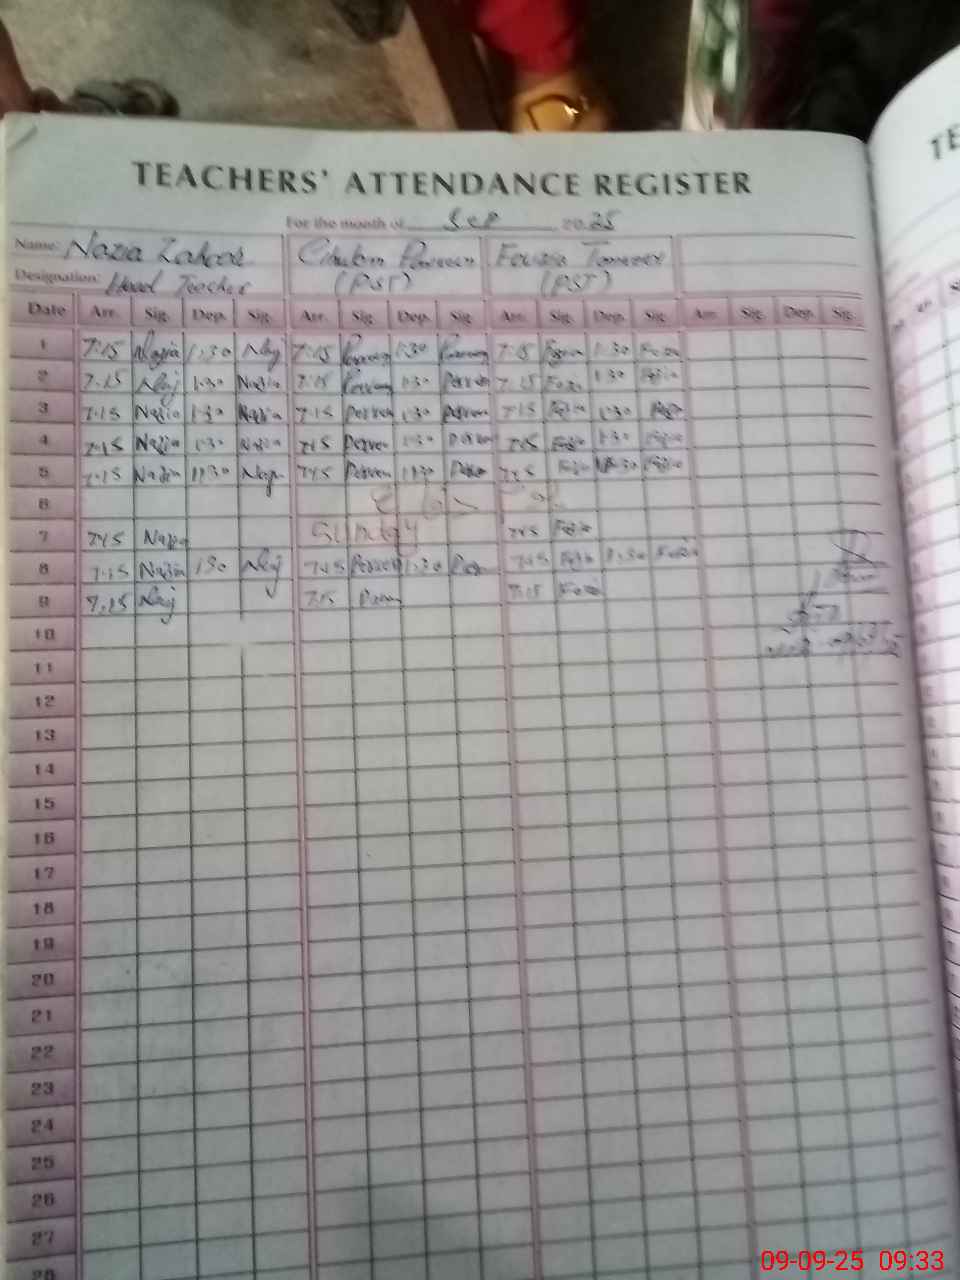 TE
TEACHERS' ATTENDANCE REGISTER
For the month of Sep 2025
Name: Nazia Parveen Fouzia
Designation: Head Teacher (PST) (PST)
Date Arr. Sig. Dep. Sig. Arr. Sig. Dep. Sig. Arr. Sig. Dep. Sig. Arr. Sig. Dep. Sig.
1 7:15 Nazia 1:30 Naz 7:15 Parveen 1:30 Parveen 7:15 Fozia 1:30 Fozia
2 7.15 Naz 1:30 Nazia 7:15 Parveen 1:30 Perveen 7:15 Fozia 1:30 Fozia
3 7.15 Nazia 1:30 Nazia 7:15 Perveen 1:30 Perveen 7:15 Fozia 1:30 Fozia
4 7:15 Nazia 1:30 Nazia 7:15 Perveen 1:30 Perveen 7:15 Fozia 1:30 Fozia
5 7:15 Nazia 11:30 7:45 Perveen 11:30 7:45 Fozia 11:30 Fozia
6
7 7:45 Nazia Sunday 7:45 Fozia
8 7:15 Nazia 1:30 Naz 7:45 Perveen 1:30 7:45 Fozia 1:30 Fozia
9 7.15 Naz 7:15 7:15 Fozia
10
11
12
13
14
15
16
17
18
19
20
21
22
23
24
25
26
27
28
09-09-25 09:33